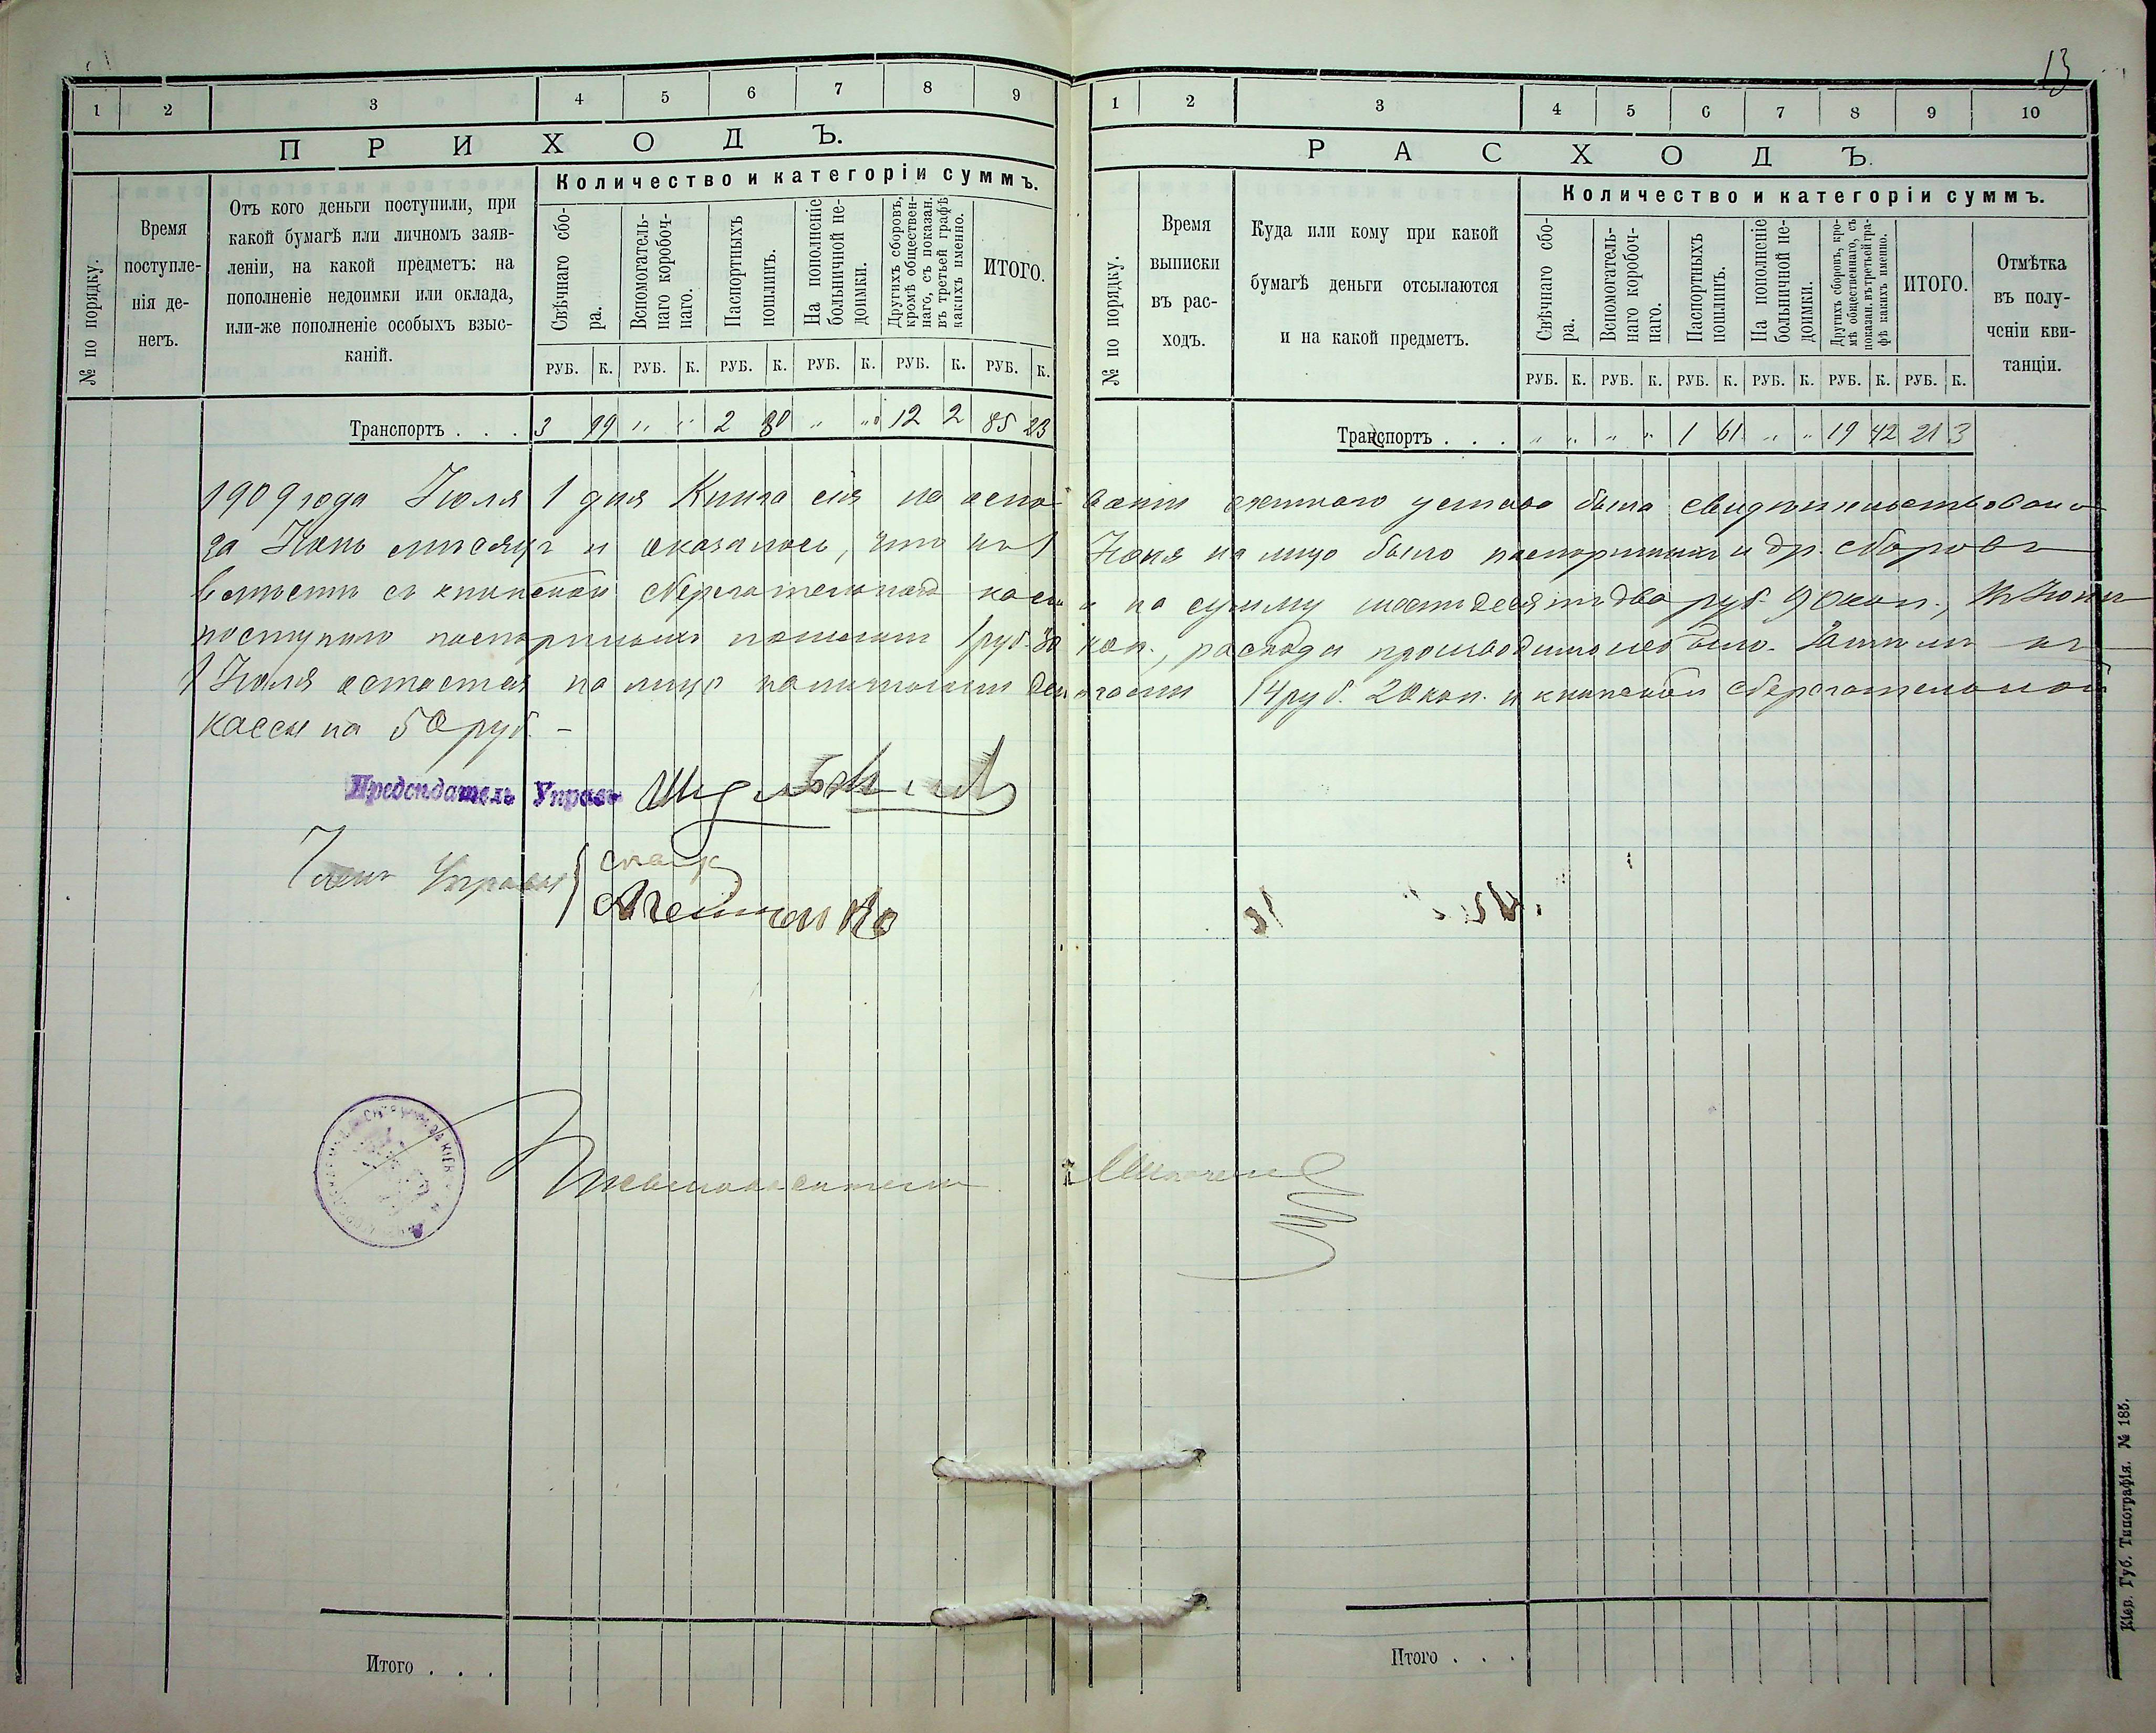 13
1 2 3 4 5 6 7 8 9
ПРИХОДЪ.
№ по порядку.
Время поступле-
нія де-
негъ.
Отъ кого деньги поступили, при
какой бумагѣ или личномъ заяв-
леніи, на какой предметъ: на
пополненіе недоимки или оклада,
или-же пополненіе особыхъ взыс-
каній.
Количество и категоріи суммъ.
Свѣчнаго сбо-
ра.
Вспомогатель-
наго коробоч-
наго.
Паспортныхъ
пошлинъ.
На пополненіе
больничной не-
доимки.
Другихъ сборовъ,
кромѣ обществен-
наго, съ показан.
въ третьей графѣ
какихъ именно.
ИТОГО.
РУБ. К. РУБ. К. РУБ. К. РУБ. К. РУБ. К. РУБ. К.
Транспортъ . . . 3 99 „ „ 2 80 „ „ 12 2 85 23
1 2 3 4 5 6 7 8 9 10
РАСХОДЪ.
№ по порядку.
Время
выписки
въ рас-
ходъ.
Куда или кому при какой
бумагѣ деньги отсылаются
и на какой предметъ.
Количество и категоріи суммъ.
Свѣчнаго сбо-
ра.
Вспомогатель-
наго коробоч-
наго.
Паспортныхъ
пошлинъ.
На пополненіе
больничной не-
доимки.
Другихъ сборовъ, кро-
мѣ общественнаго, съ
показан. въ третьей гра-
фѣ какихъ именно.
ИТОГО.
Отмѣтка
въ полу-
ченіи кви-
танціи.
РУБ. К. РУБ. К. РУБ. К. РУБ. К. РУБ. К. РУБ. К.
Транспортъ . . . „ „ „ „ 1 61 „ „ 19 42 21 3
1909 года Іюля 1 дня Книга сія на осно ваніи счетнаго устава была свидѣтельствована
за Іюнь мѣсяцъ и оказалось, что къ 1 Іюня на лицо было паспортныхъ и др. сборовъ
вмѣстѣ съ книжкой сберегательной кассы на сумму шестьдесятъ два руб. 90 коп., Въ Іюнѣ
поступило паспортныхъ пошлинъ 1 руб. 30 коп., расхода производимо не было. Затѣмъ къ
1 Іюля остается на лицо наличными день гами 14 руб. 20 коп. и книжкой сберегательной
кассы на 50 руб. –
Предсѣдатель Управы
Члены Управы
Итого . . .
Итого . . .
Кіев. Губ. Типографія. № 185.